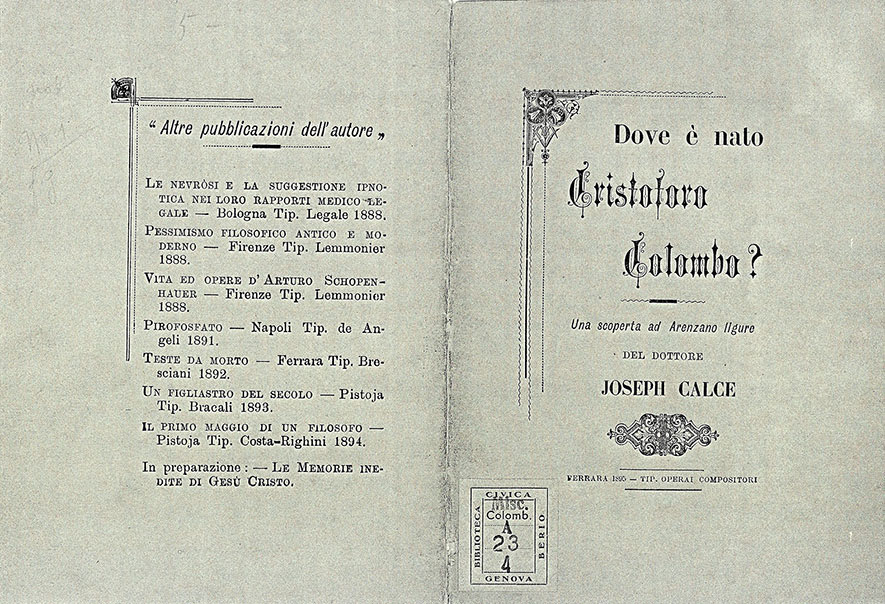 "Altre pubblicazioni dell'autore„
LE NEVRÒSI E LA SUGGESTIONE IPNO-
TICA NEI LORO RAPPORTI MEDICO-LE-
GALE — Bologna Tip. Legale 1888.
PESSIMISMO FILOSOFICO ANTICO E MO-
DERNO — Firenze Tip. Lemmonier
1888.
VITA ED OPERE D'ARTURO SCHOPEN-
HAUER — Firenze Tip. Lemmonier
1888.
PIROFOSFATO — Napoli Tip. de An-
geli 1891.
TESTE DA MORTO — Ferrara Tip. Bre-
sciani 1892.
UN FIGLIASTRO DEL SECOLO — Pistoja
Tip. Bracali 1893.
IL PRIMO MAGGIO DI UN FILOSOFO —
Pistoja Tip. Costa-Righini 1894.
In preparazione: — LE MEMORIE INE-
DITE DI GESÙ CRISTO.
Dove è nato
Cristoforo
Colombo?
Una scoperta ad Arenzano ligure
DEL DOTTORE
JOSEPH CALCE
FERRARA 1895 — TIP. OPERAI COMPOSITORI
CIVICA
BIBLIOTECA
BERIO
GENOVA
Misc.
Colomb.
A
23
4